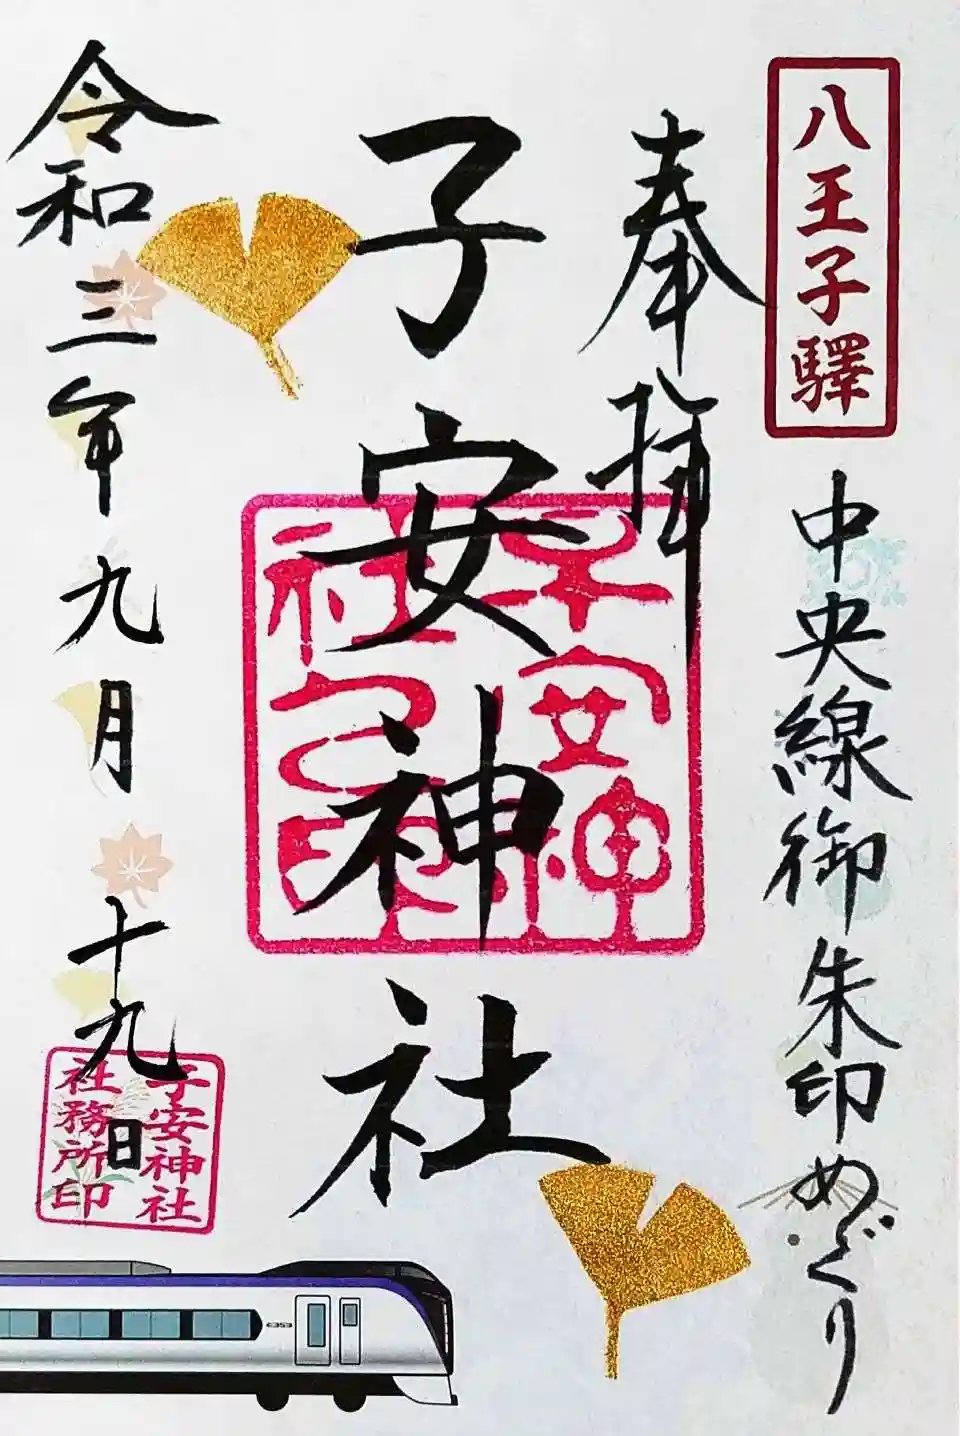 八王子驛
中央線御朱印めぐり
奉拝
子安神社
子安神
社之印
令和三年九月十九日
子安神社
社務所印